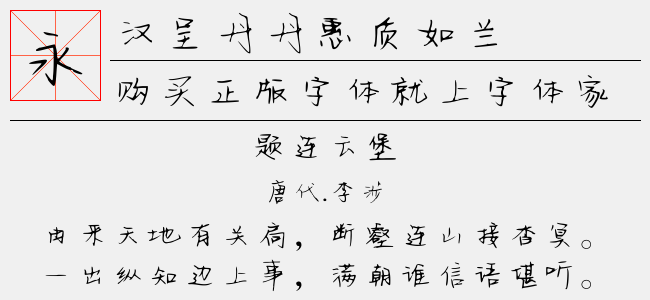 永
汉呈丹丹惠质如兰
购买正版字体就上字体家
题连云堡
唐代.李涉
由来天地有关扃，断壑连山接杳冥。
一出纵知边上事，满朝谁信语堪听。